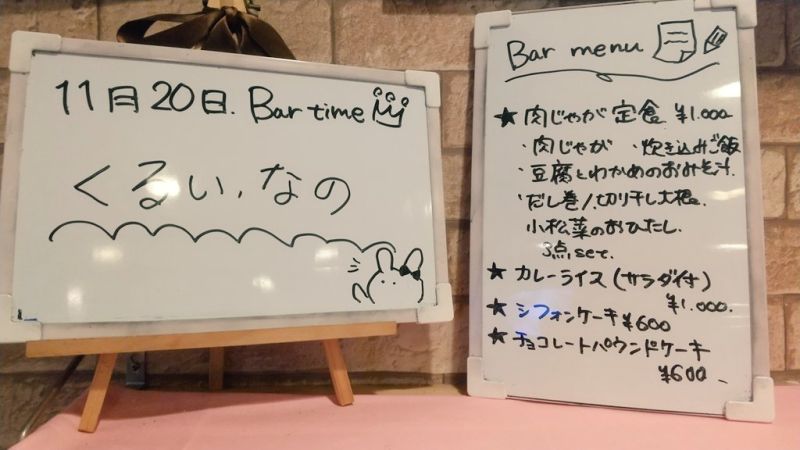 11月20日. Bar time
くるい、なの
Bar menu
★ 肉じゃが定食 ¥1.000
・肉じゃが ・炊き込みご飯
・豆腐とわかめのおみそ汁
・だし巻/切り干し大根
小松菜のおひたし
3点set.
★ カレーライス(サラダ付)
¥1.000.
★ シフォンケーキ ¥600
★ チョコレートパウンドケーキ
¥600